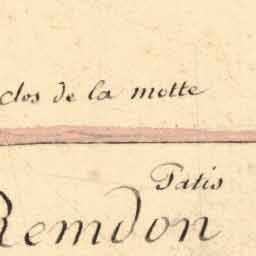 clos de la motte
Patis
Remdon